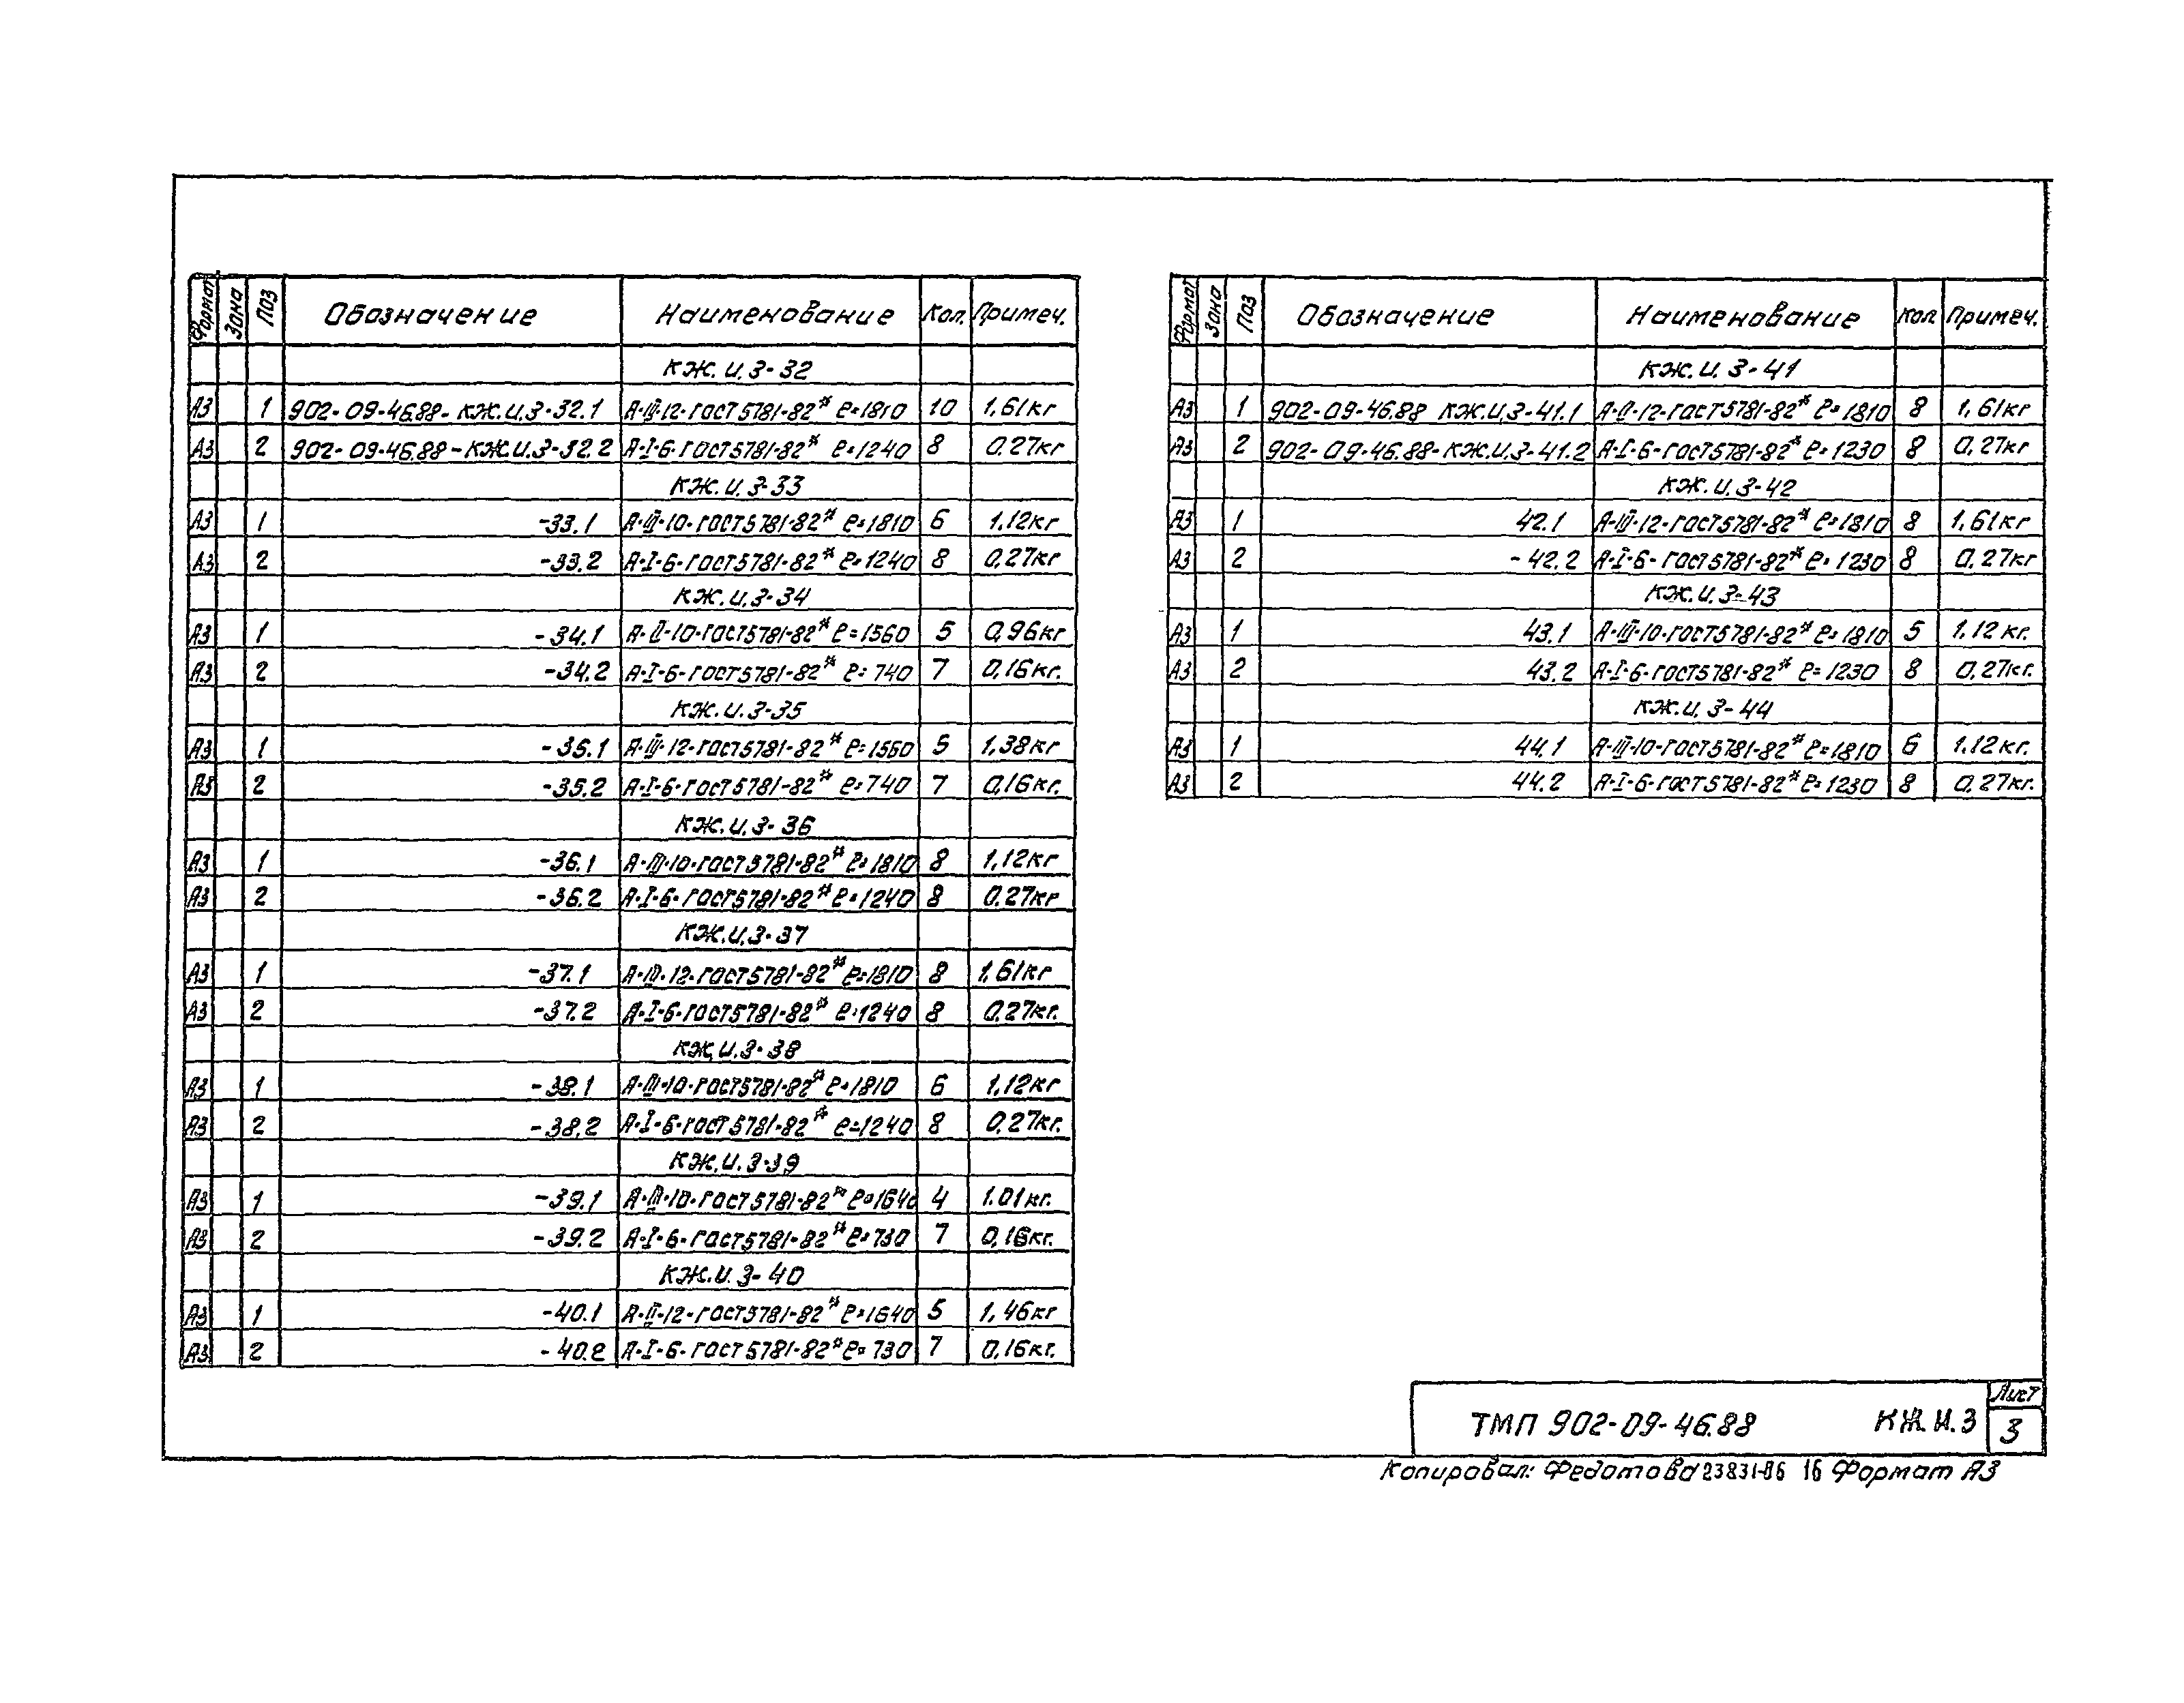 Формат Зона Поз Обозначение Наименование Кол. Примеч.
КЖ.И.3-32
А3 1 902-09-46.88-КЖ.И.3-32.1 А-III-12-ГОСТ 5781-82* ℓ=1810 10 1,61кг
А3 2 902-09-46.88-КЖ.И.3-32.2 А-I-6-ГОСТ 5781-82* ℓ=1240 8 0.27кг
КЖ.И.3-33
А3 1 -33.1 А-III-10-ГОСТ 5781-82* ℓ=1810 6 1.12кг
А3 2 -33.2 А-I-6-ГОСТ 5781-82* ℓ=1240 8 0,27кг
КЖ.И.3-34
А3 1 -34.1 А-II-10-ГОСТ 5781-82* ℓ=1560 5 0,96кг
А3 2 -34.2 А-I-6-ГОСТ 5781-82* ℓ=740 7 0,16кг.
КЖ.И.3-35
А3 1 -35.1 А-III-12-ГОСТ 5781-82* ℓ=1560 5 1,38кг
А3 2 -35.2 А-I-6-ГОСТ 5781-82* ℓ=740 7 0,16кг.
КЖ.И.3-36
А3 1 -36.1 А-III-10-ГОСТ 5781-82* ℓ=1810 8 1,12кг
А3 2 -36.2 А-I-6-ГОСТ 5781-82* ℓ=1240 8 0.27кг
КЖ.И.3-37
А3 1 -37.1 А-III-12-ГОСТ 5781-82* ℓ=1810 8 1,61кг
А3 2 -37.2 А-I-6-ГОСТ 5781-82* ℓ=1240 8 0.27кг.
КЖ.И.3-38
А3 1 -38.1 А-III-10-ГОСТ 5781-82* ℓ=1810 6 1,12кг
А3 2 -38.2 А-I-6-ГОСТ 5781-82* ℓ=1240 8 0,27кг.
КЖ.И.3-39
А3 1 -39.1 А-III-10-ГОСТ 5781-82* ℓ=1640 4 1.01кг.
А3 2 -39.2 А-I-6-ГОСТ 5781-82* ℓ=730 7 0,16кг.
КЖ.И.3-40
А3 1 -40.1 А-II-12-ГОСТ 5781-82* ℓ=1640 5 1,46кг
А3 2 -40.2 А-I-6-ГОСТ 5781-82* ℓ=730 7 0,16кг.
Формат Зона Поз Обозначение Наименование Кол Примеч.
КЖ.И.3-41
А3 1 902-09-46.88 КЖ.И.3-41.1 А-II-12-ГОСТ 5781-82* ℓ=1810 8 1,61кг
А3 2 902-09-46.88-КЖ.И.3-41.2 А-I-6-ГОСТ 5781-82* ℓ=1230 8 0,27кг
КЖ.И.3-42
А3 1 42.1 А-III-12-ГОСТ 5781-82* ℓ=1810 8 1,61кг
А3 2 -42.2 А-I-6-ГОСТ 5781-82* ℓ=1230 8 0,27кг
КЖ.И.3-43
А3 1 43.1 А-III-10-ГОСТ 5781-82* ℓ=1810 5 1.12 кг.
А3 2 43.2 А-I-6-ГОСТ 5781-82* ℓ=1230 8 0,27кг.
КЖ.И.3-44
А3 1 44.1 А-III-10-ГОСТ 5781-82* ℓ=1810 6 1.12кг.
А3 2 44.2 А-I-6-ГОСТ 5781-82* ℓ=1230 8 0,27кг.
ТМП 902-09-46.88 КЖ.И.3 Лист 3
Копировал: Федотова 23831-06 16 Формат А3